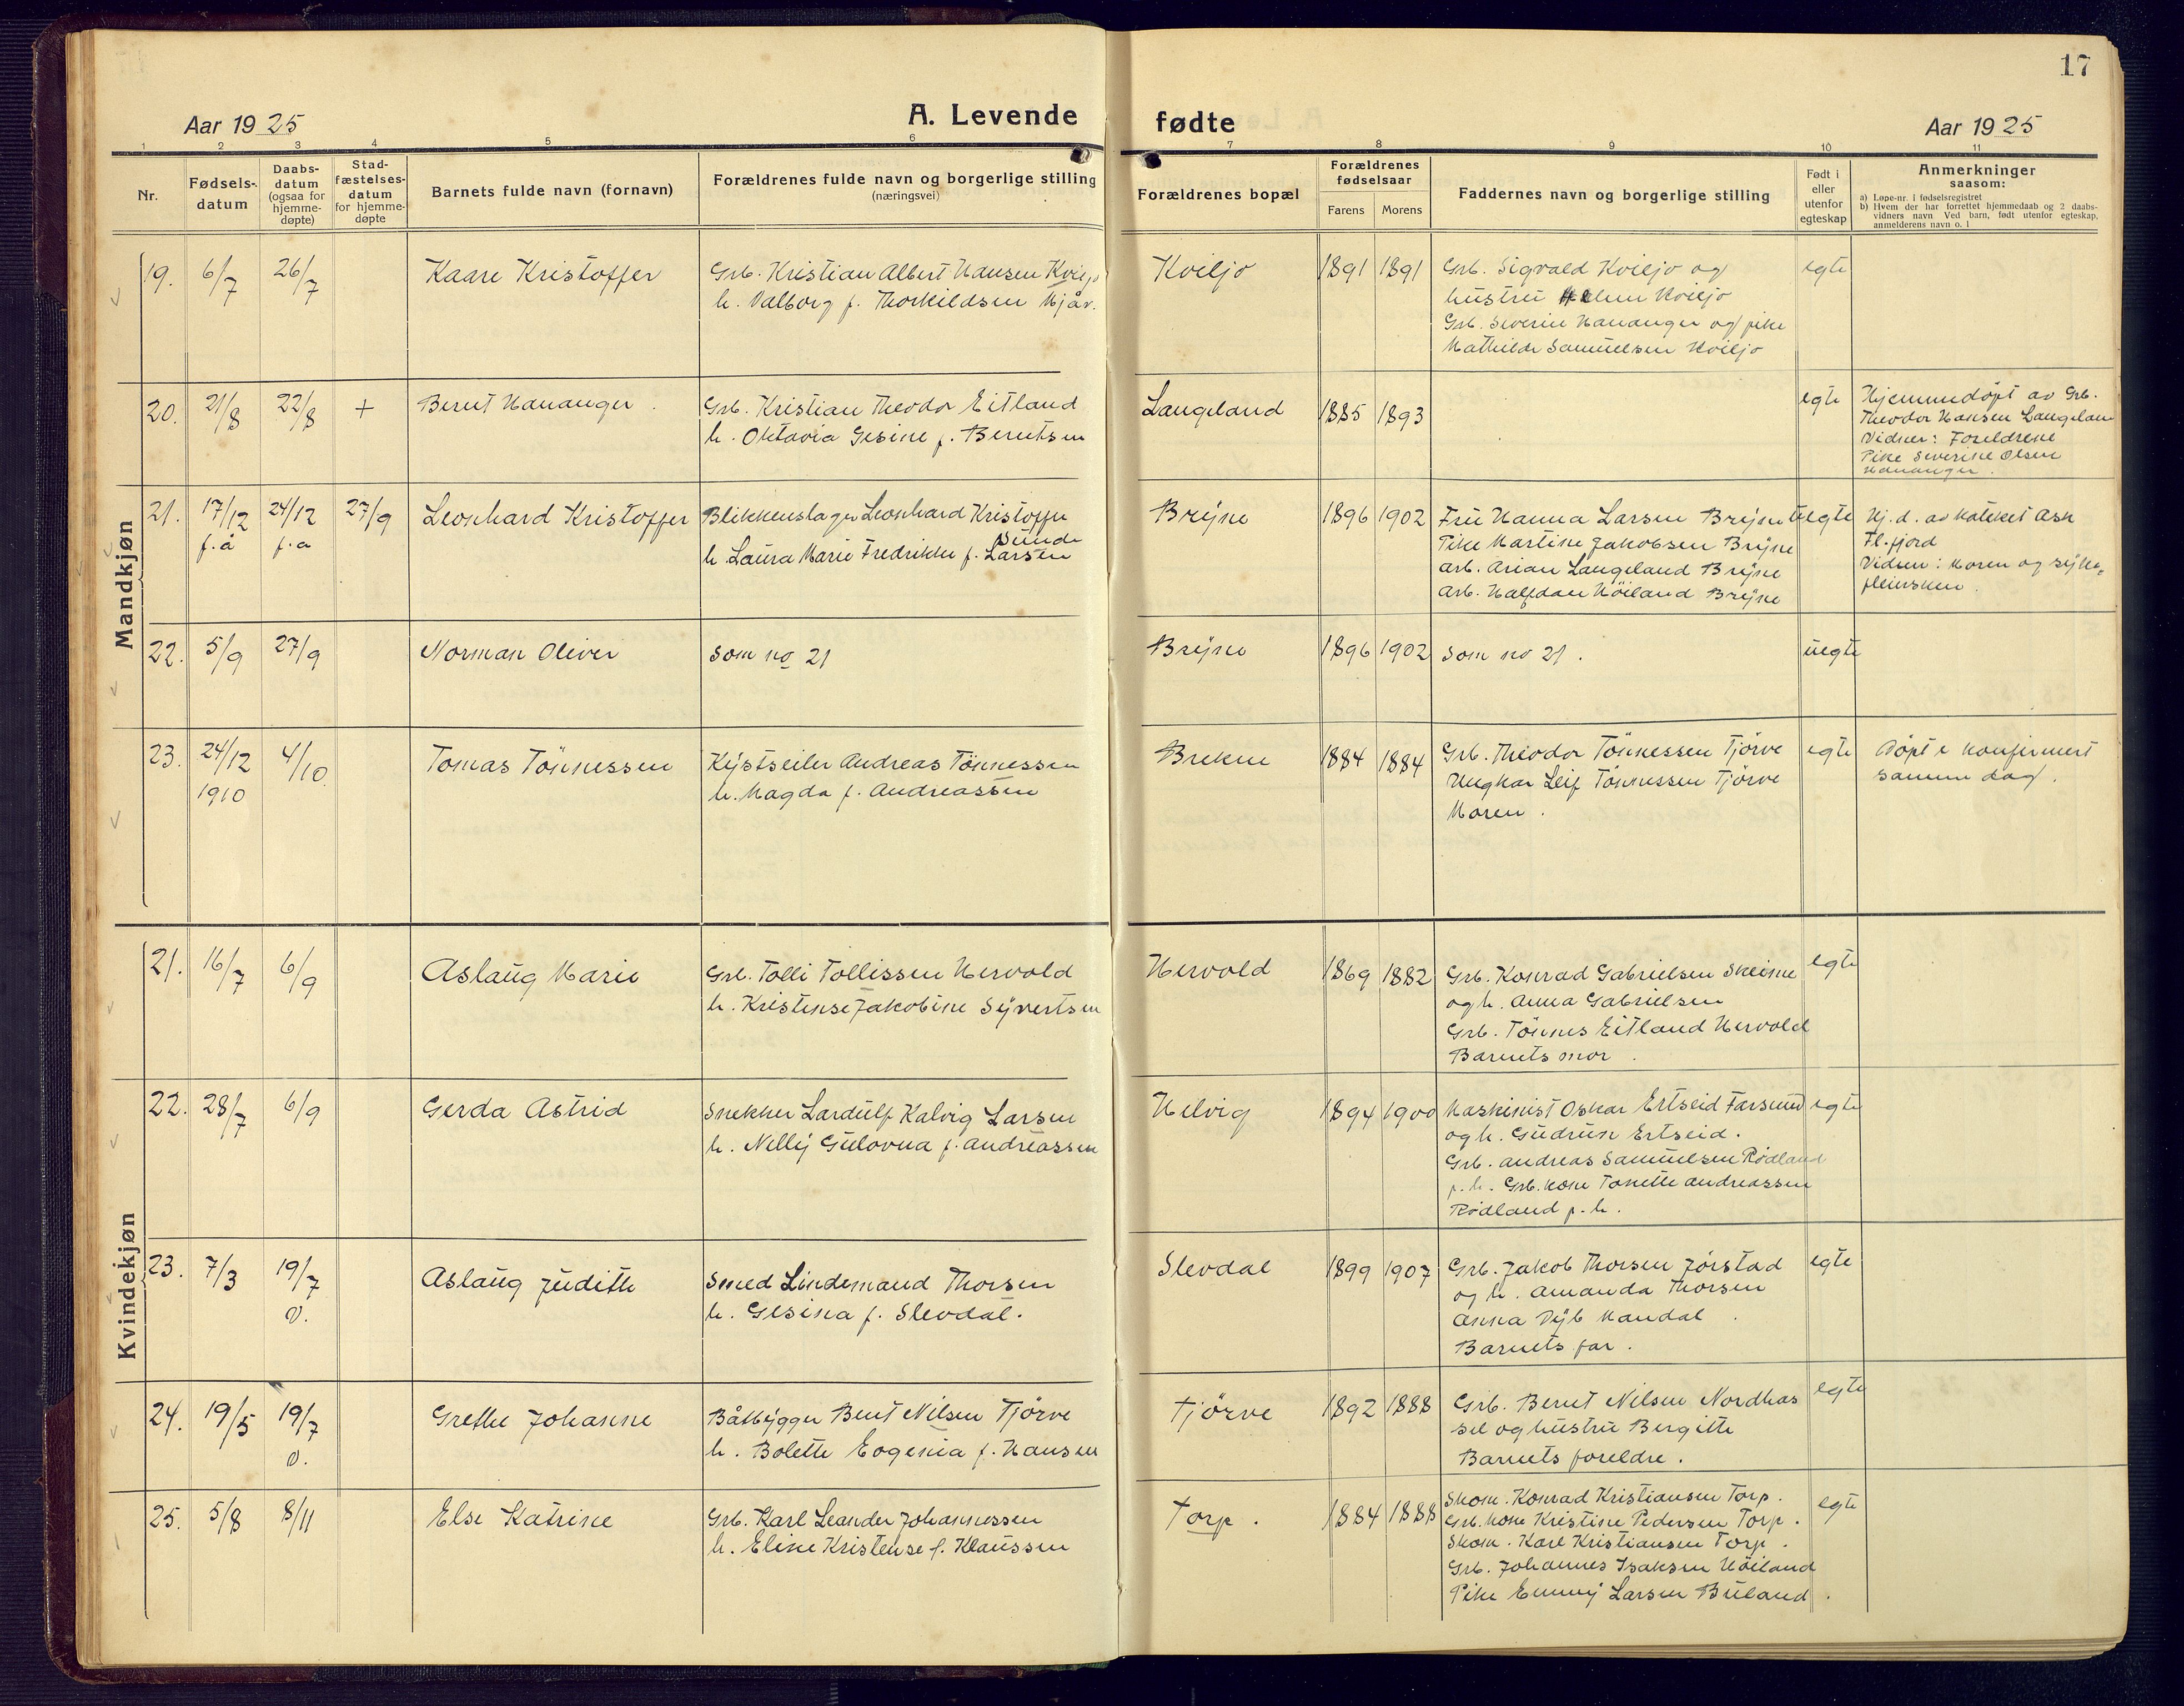 17
Aar 1925
A. Levende
fødte
Aar 1925
1 2 3 4 5 6 7 8 9 10 11
Nr.
Fødsels-
datum
Daabs-
datum
(ogsaa for
hjemme-
døpte)
Stad-
fæstelses-
datum
for hjemme-
døpte
Barnets fulde navn (fornavn)
Forældrenes fulde navn og borgerlige stilling
(næringsvei)
Forældrenes bopæl
Forældrenes
fødselsaar
Farens Morens
Faddernes navn og borgerlige stilling
Født i
eller
utenfor
egteskap
Anmerkninger
saasom:
a) Løpe-nr. i fødselsregistret
b) Hvem der har forrettet hjemmedaab og 2 daabs-
vidners navn Ved barn, født utenfor egteskap,
anmelderens navn o. l
Mandkjøn
19. 6/7 26/7 Kaare Kristoffer
Grb. Kristian Albert Hansen Kviljo
h. Valborg f. Thorkildsen Mjår.
Kviljo 1891 1891
Grb. Sigvald Kviljo og
hustru Kviljo
Grb. Severin Hananger og pike
Mathilde Samuelsen Kviljo
egte
20. 21/8 22/8 + Bernt Hananger.
Grb. Kristian Theodor Eitland
h. Oktavia Gesine f. Berntsen
Langeland 1885 1893
egte
Hjemmedøpt av Grb.
Theodor Hansen Langeland
Vidner: Foreldrene
Pike Severine Olsen
Hananger.
21. 17/12 24/12 27/9 Leonhard Kristoffer
f.å f.a
Blikkenslager Leonhard Kristoffer
Sunde
h. Laura Marie Fredrikke f. Larsen
Bryne 1896 1902
Fru Hanna Larsen Bryne
Pike Martine Jakobsen Bryne
Arb. Arian Langeland Bryne
Arb. Halfdan Höiland Bryne
uegte
Hj. d. av kateket Ask
Fl.fjord
Vidner: Moren og syke=
pleiersken.
22. 5/9 27/9 Norman Oliver
Som no 21
Bryne 1896 1902
Som no 21.
uegte
23. 24/12 4/10 Tomas Tönnessen
1910
Kystseiler Andreas Tönnessen
h. Magda f. Andreassen
Brekne 1884 1884
Grb. Theodor Tönnessen Tjörve
Ungkar Leif Tönnessen Tjörve
Moren.
egte
Döpt & konfirmert
samme dag.
Kvindekjøn
21. 16/7 6/9 Aslaug Marie
Grb. Tolli Tollissen Hervold
h. Kristense Jakobine Syvertsen
Hervold 1869 1882
Grb. Konrad Gabrielsen Skeime
og h. Anna Gabrielsen
Grb. Tönnes Eitland Hervold
Barnets mor.
egte
22. 28/7 6/9 Gerda Astrid
Snekker Lardulf Kalvig Larsen
h. Nelly Gulovna f. Andreassen
Helvig 1894 1900
Maskinist Oskar Ertseid Farsund
og h. Gudrun Ertseid.
Grb. Andreas Samuelsen Rödland
p.h. Grb.kone Tonette Andreassen
Rödland p.h.
egte
23. 7/3 19/7 Aslaug Judith
V.
Smed Lindemand Thorsen
h. Gesina f. Slevdal.
Slevdal 1899 1907
Grb. Jakob Thorsen Jörstad
og h. Amanda Thorsen
Anna Dyb Mandal.
Barnets far.
egte
24. 19/5 19/7 Grethe Johanne
V.
Båtbygger Bent Nilsen Tjörve
h. Bolette Eogenia f. Hansen
Tjörve 1892 1888
Grb. Bernt Nilsen Nordhas
sel og hustru Bergitte
Barnets foreldre.
egte
25. 5/8 8/11 Else Katrine
Grb. Karl Leander Johannessen
h. Eline Kristense f. Klaussen
Torp. 1884 1888
Skom. Konrad Kristiansen Torp.
Grb.kone Kristine Pedersen Torp.
Skom. Karl Kristiansen Torp.
Grb. Johannes Isaksen Höiland
Pike Emmy Larsen Buland.
egte